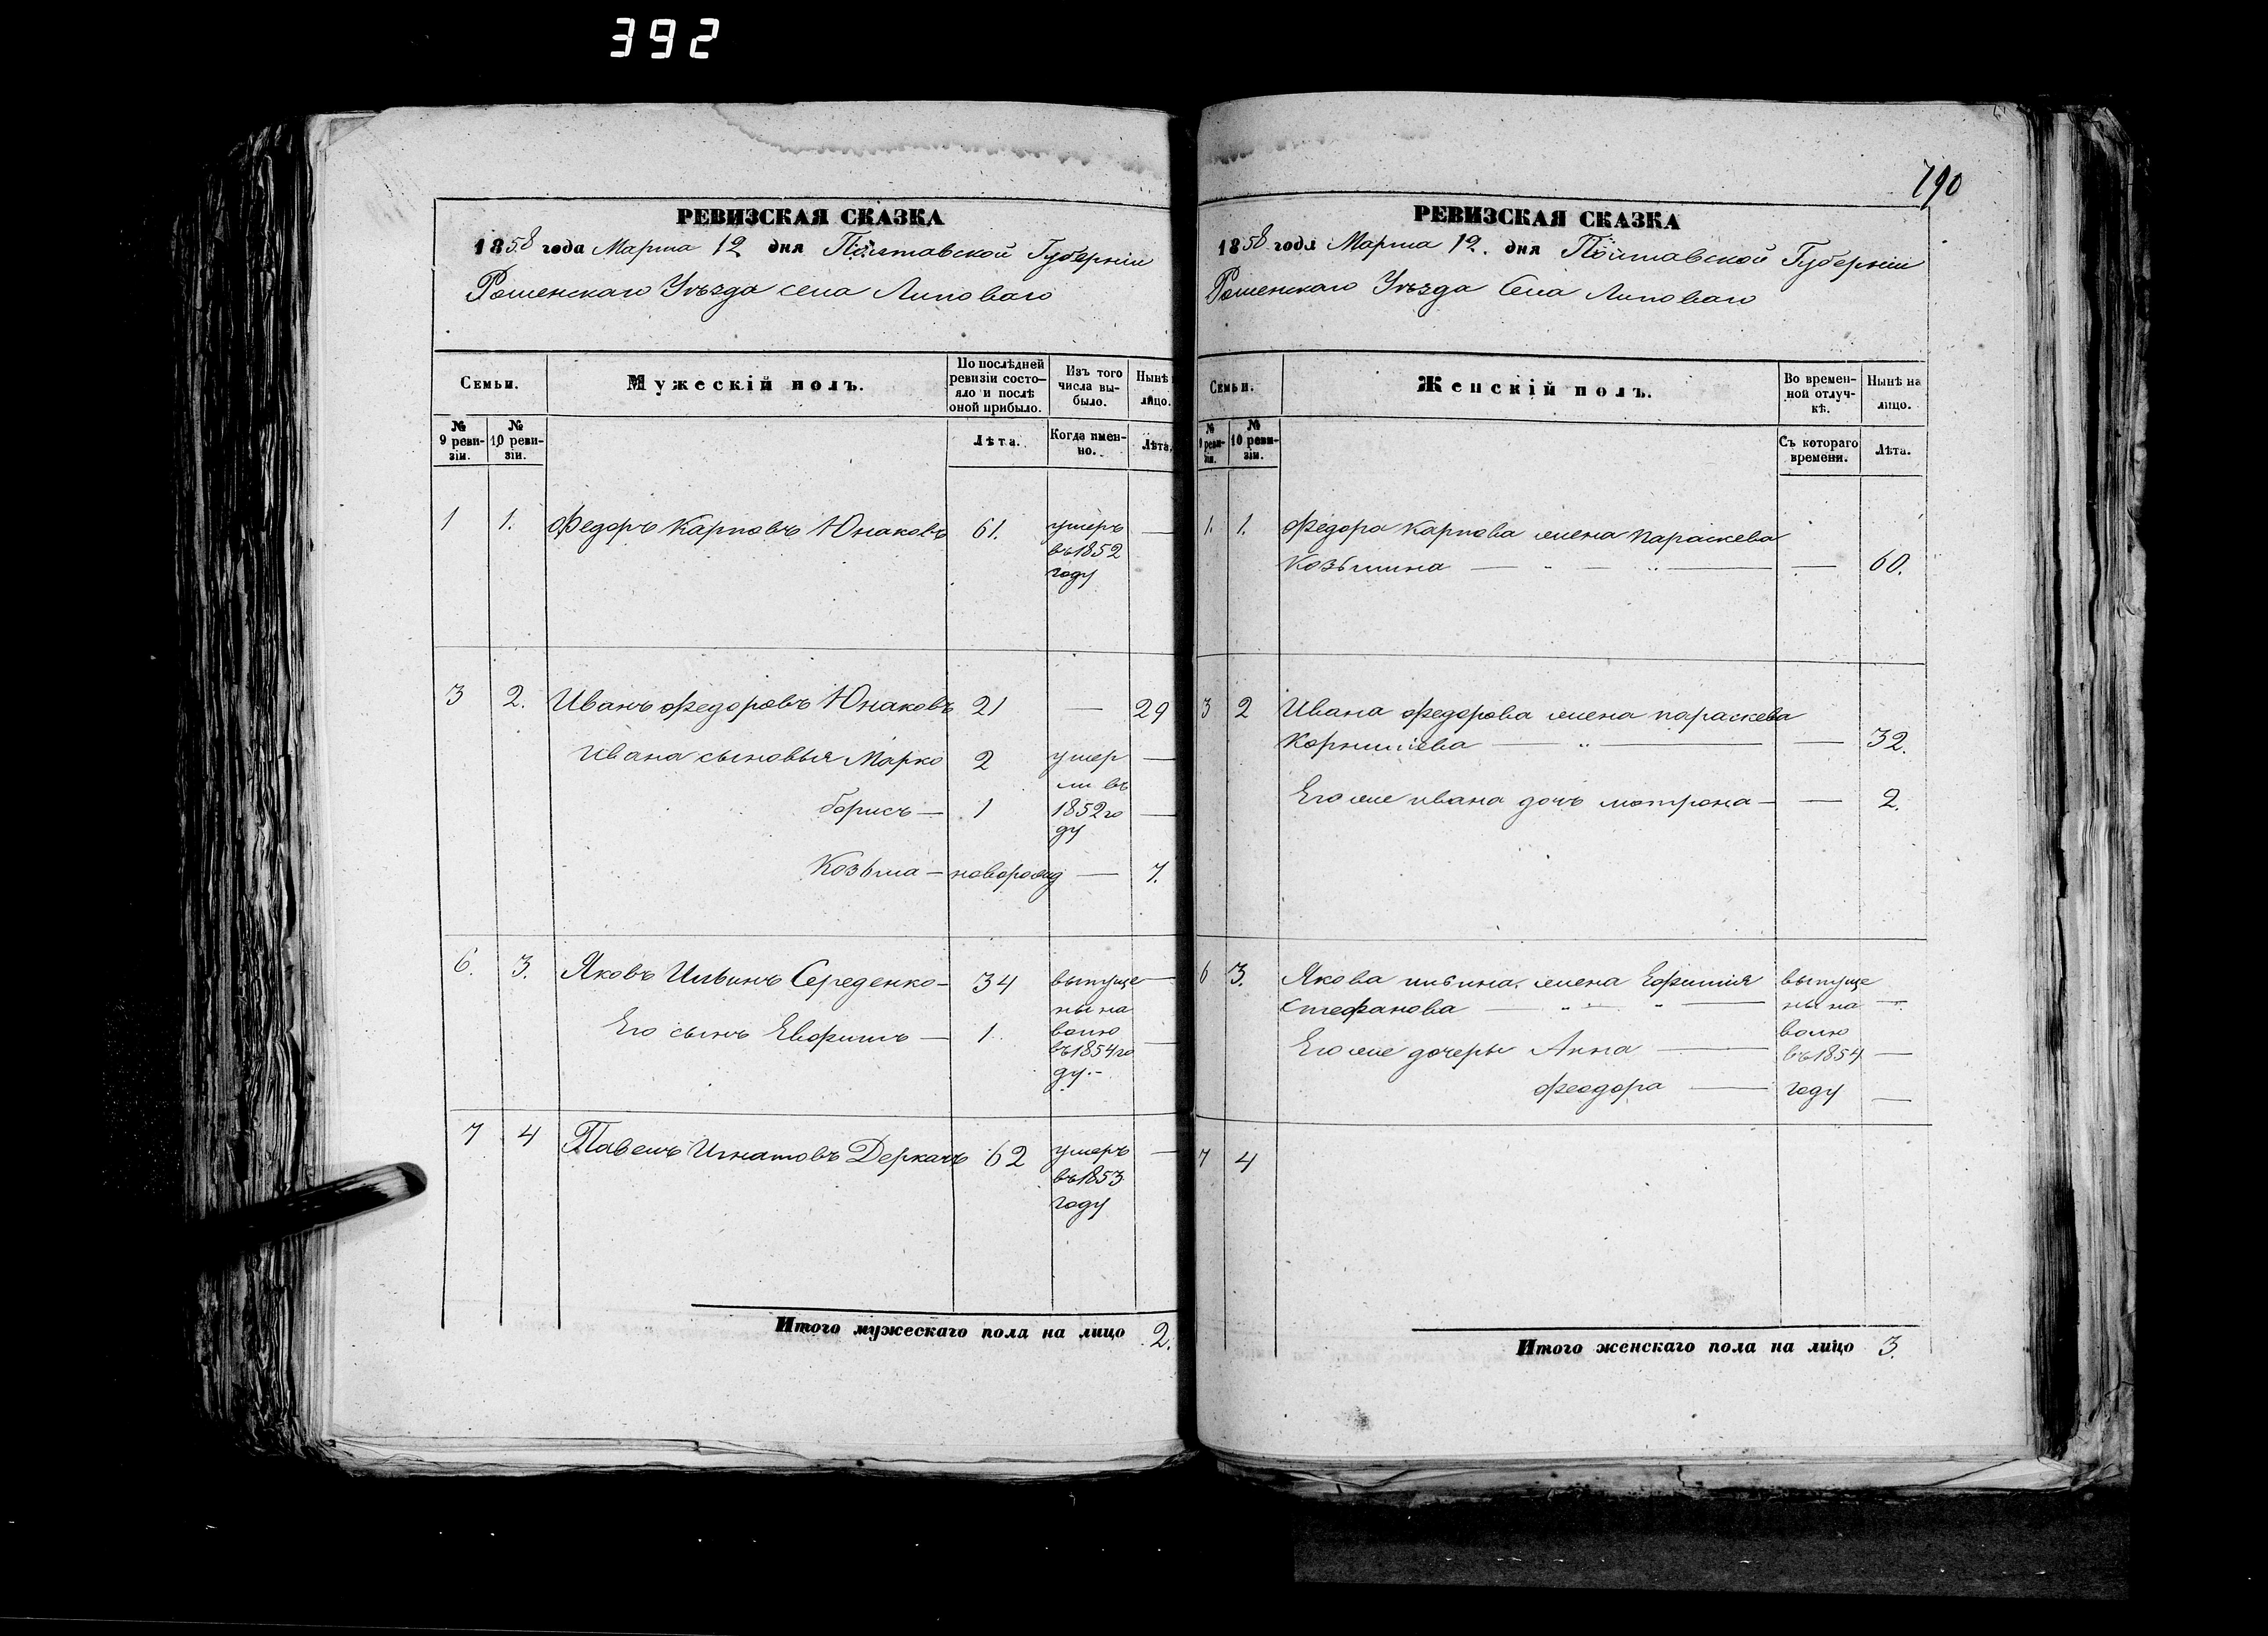 392
РЕВИЗСКАЯ СКАЗКА
1858 года Марта 12 дня Полтавской Губерніи
Роменскаго Уѣзда села Липоваго
Семьи.
Мужескій полъ.
По послѣдней ревизіи состояло и послѣ оной прибыло.
Изъ того числа выбыло.
Нынѣ лицо.
№ 9 ревизіи.
№ 10 ревизіи.
Лѣта.
Когда именно.
Лѣта.
1 1. Федоръ Карповъ Юнаковъ 61. умеръ —
въ 1852
году
3 2. Иванъ Федоровъ Юнаковъ 21 — 29
Ивана сыновья Марко 2 умер —
ли въ
Борисъ — 1 1852 го —
ду
Козьма — новорожд — 7.
6. 3. Яковъ Ильинъ Середенко — 34 выпуще —
ны на
Его сынъ Евфимъ — 1. волю
въ 1854 го —
ду. —
7 4 Павелъ Игнатовъ Деркачъ 62 умеръ —
въ 1853
году
Итого мужескаго пола на лицо 2.
790
РЕВИЗСКАЯ СКАЗКА
1858 года Марта 12. дня Полтавской Губерніи
Роменскаго Уѣзда Села Липоваго
Семьи.
Женскій полъ.
Во временной отлучкѣ.
Нынѣ на лицо.
№ 9 ревизіи.
№ 10 ревизіи.
Съ котораго времени.
Лѣта.
1. 1. Федора Карпова жена Параскева
Козьмина — " — " — — 60.
3 2 Ивана Федорова жена Параскева
Корнилiева — " — — 32.
Его же Ивана дочь Мотрона — — 2.
6 3. Якова Ильина жена Ефимія выпуще
Стефанова — " — " — ны на —
волю
Его же дочери Анна — въ 1854 —
Феодора — году —
7 4
Итого женскаго пола на лицо 3.